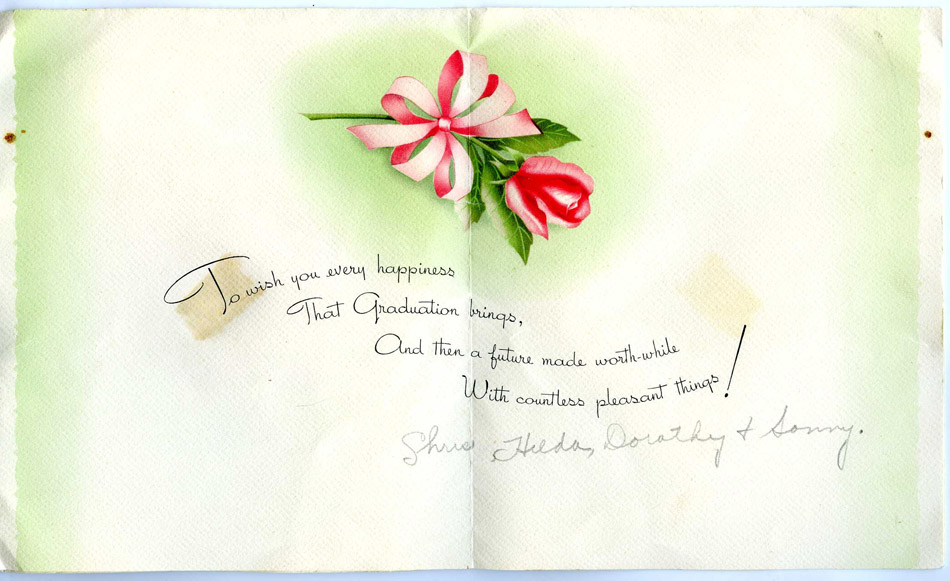 To wish you every happiness
That Graduation brings,
And then a future made worth-while
With countless pleasant things!
Hilda, Dorothy & Sonny.